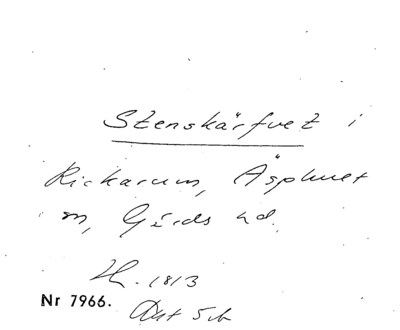 Stenskärfvet i
Rickarum, Äsphult
sn, Gärds hd.
H. 1813
Nr 7966.